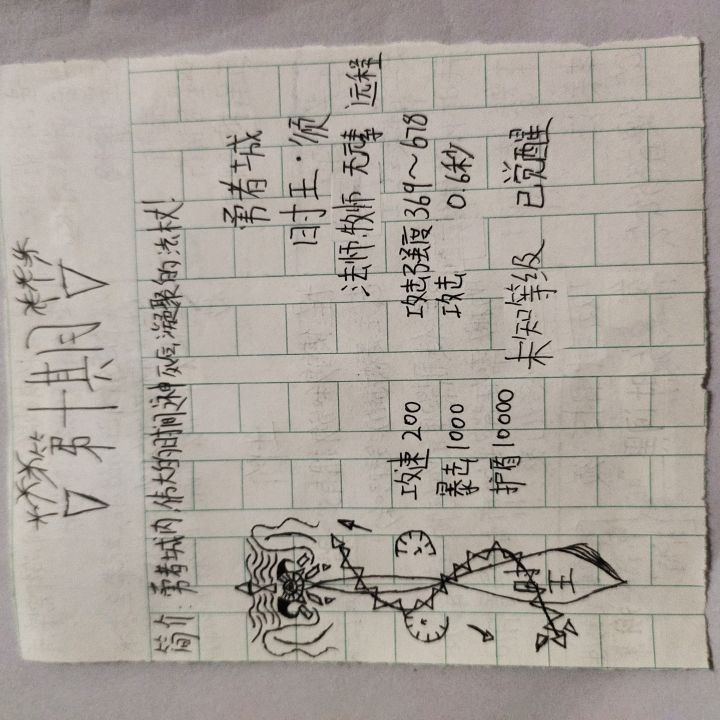 第十期
简介:勇者城内,伟大的时间这种反应凝聚的法杖!
勇者城
时王·须
法师.牧师 无障 远程
攻击强度 369～678
攻击 0.6秒
未知等级 已觉醒
攻速 200
暴击 1000
护盾 10000
时王